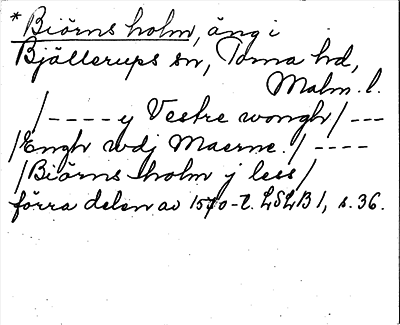 * Biörns holm, äng i
Bjällerups sn, Torna hd,
Malm. l.
/ - - - - y Vestre wongh / - - -
/ Engh wdj Maerne. / - - - -
/ Biörns holm j less /
förra delen av 1570-t. LSLB 1, s. 36.